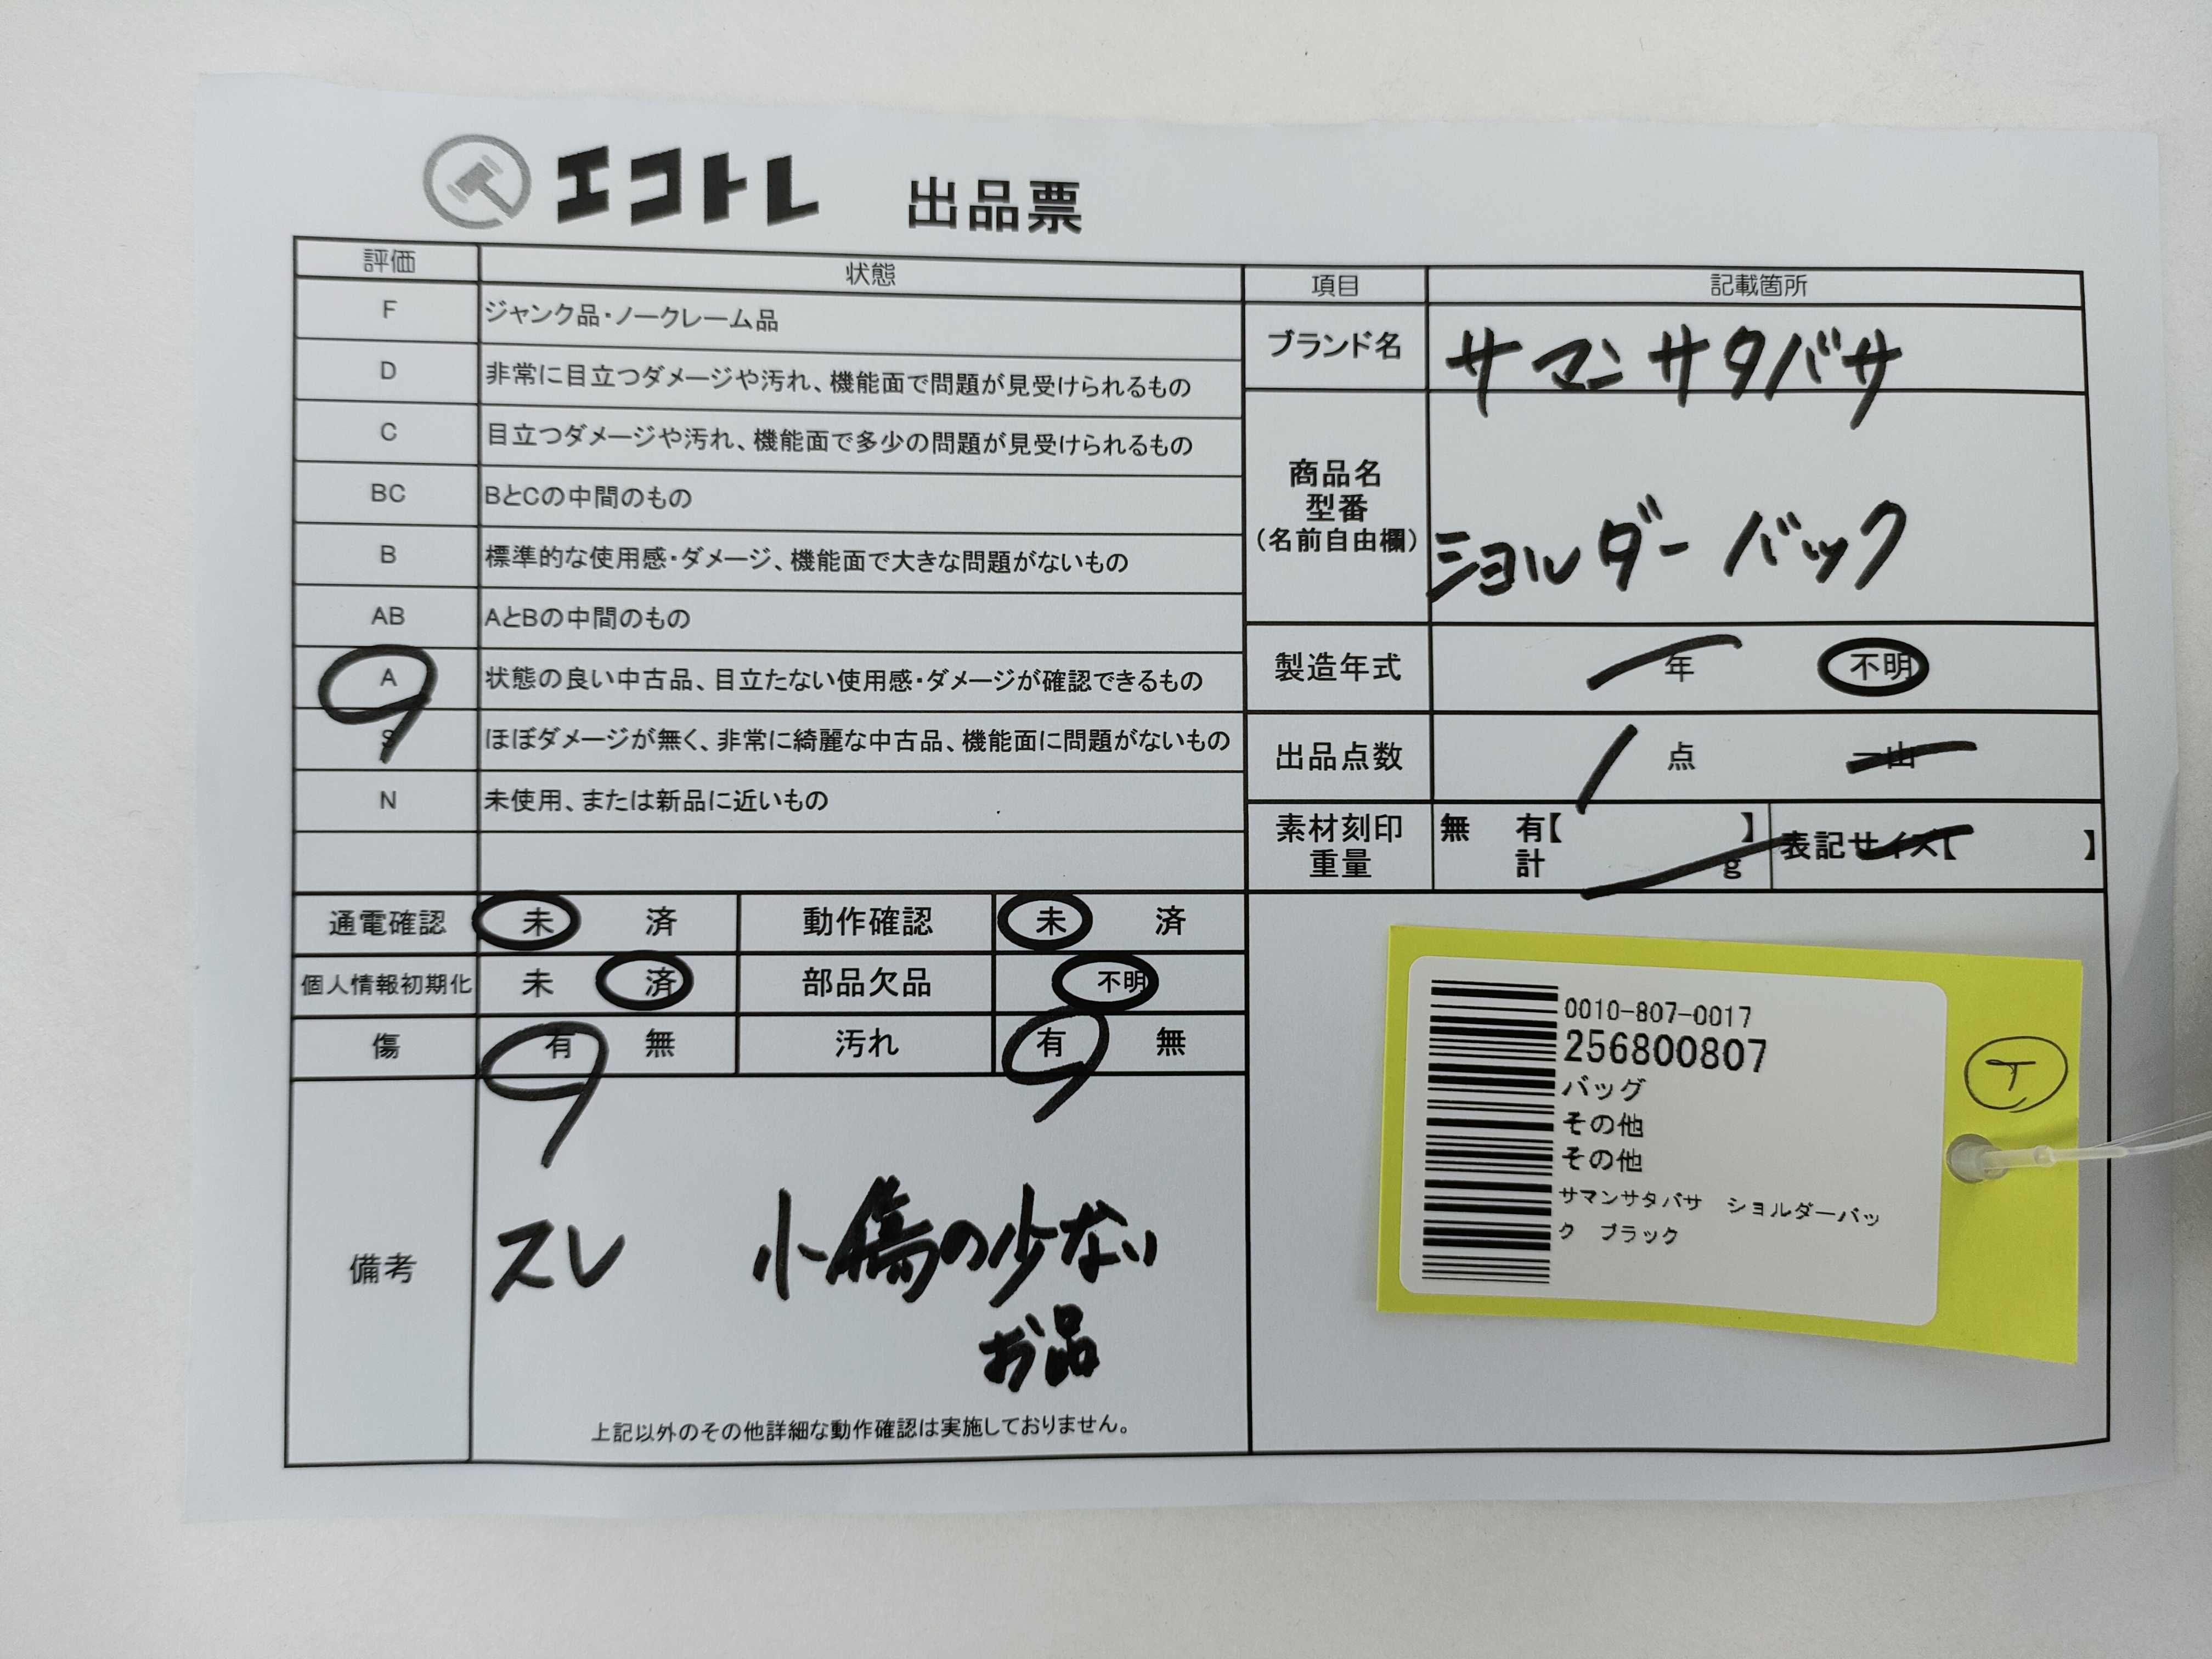 エコトレ 出品票
評価 状態
F ジャンク品・ノークレーム品
D 非常に目立つダメージや汚れ、機能面で問題が見受けられるもの
C 目立つダメージや汚れ、機能面で多少の問題が見受けられるもの
BC BとCの中間のもの
B 標準的な使用感・ダメージ、機能面で大きな問題がないもの
AB AとBの中間のもの
A 状態の良い中古品、目立たない使用感・ダメージが確認できるもの
S ほぼダメージが無く、非常に綺麗な中古品、機能面に問題がないもの
N 未使用、または新品に近いもの
通電確認 未 済 動作確認 未 済
個人情報初期化 未 済 部品欠品 不明
傷 有 無 汚れ 有 無
備考
スレ 小傷の少ない
お品
上記以外のその他詳細な動作確認は実施しておりません。
項目 記載箇所
ブランド名 サマンサタバサ
商品名
型番
(名前自由欄)
ショルダーバック
製造年式 年 不明
出品点数 1 点 一山
素材刻印 無 有【 】
重量 計 g
表記サイズ【 】
0010-807-0017
256800807
バッグ
その他
その他
サマンサタバサ ショルダーバッ
ク ブラック
T